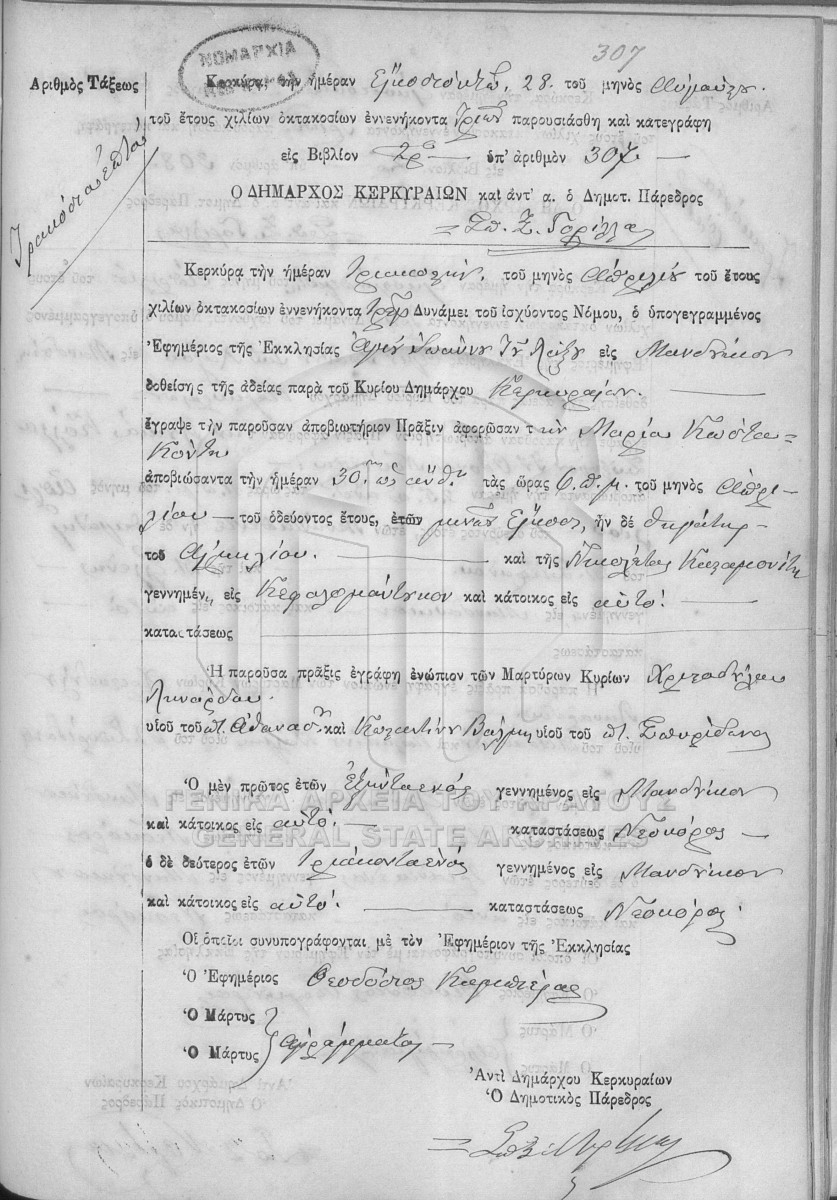 307
ΝΟΜΑΡΧΙΑ
Ἀριθμὸς Τάξεως
Κερκύρα, τὴν ἡμέραν 28. τοῦ μηνὸς
τοῦ ἔτους χιλίων ὀκτακοσίων ἐννενήκοντα τριῶν παρουσιάσθη καὶ κατεγράφη
εἰς Βιβλίον 2ρο ὑπ' ἀριθμὸν 307
Τριακόσια ἑπτά
Ὁ ΔΗΜΑΡΧΟΣ ΚΕΡΚΥΡΑΙΩΝ καὶ ἀντ' α. ὁ Δημοτ. Πάρεδρος
Σπ. Ξ.
Κερκύρα τὴν ἡμέραν τριακοστὴν τοῦ μηνὸς Ἀπριλίου τοῦ ἔτους
χιλίων ὀκτακοσίων ἐννενήκοντα Δυνάμει τοῦ ἰσχύοντος Νόμου, ὁ ὑπογεγραμμένος
Ἐφημέριος τῆς Ἐκκλησίας Ἁγίου Ἰωάννου εἰς Μανδούκιον
δοθείσης τῆς ἀδείας παρὰ τοῦ Κυρίου Δημάρχου Κερκυραίων.
ἔγραψε τὴν παροῦσαν ἀποβιωτήριον Πρᾶξιν ἀφορῶσαν τὴν Μαρία Κώστα
Κόντη
ἀποβιώσαντα τὴν ἡμέραν 30. τὰς ὥρας 6. π. μ. τοῦ μηνὸς Ἀπρι-
λίου τοῦ ὁδεύοντος ἔτους, ἐτῶν μηνῶν εἴκοσι, ἦν δὲ θυγάτηρ
τοῦ καὶ τῆς Νικολέτας
γεννημέν εἰς καὶ κάτοικος εἰς αὐτό.
καταστάσεως
Ἡ παροῦσα πρᾶξις ἐγράφη ἐνώπιον τῶν Μαρτύρων Κυρίων Χριστοδούλου
Λινάρδου.
υἱοῦ τοῦ π. Ἀθανασίου καὶ Κωνσταντίνου υἱοῦ τοῦ π. Σπυρίδωνος
Ὁ μὲν πρῶτος ἐτῶν ἑξήντα ἑνός γεννημένος εἰς Μανδούκιον
καὶ κάτοικος εἰς αὐτό. καταστάσεως Νεοκόρος
ὁ δὲ δεύτερος ἐτῶν τριάκοντα ἑνός γεννημένος εἰς Μανδούκιον
καὶ κάτοικος εἰς αὐτό. καταστάσεως Νεοκόρος.
Οἱ ὁποῖοι συνυπογράφονται μὲ τὸν Ἐφημέριον τῆς Ἐκκλησίας
Ὁ Ἐφημέριος Θεοδόσιος
Ὁ Μάρτυς
Ὁ Μάρτυς ἀγράμματοι
Ἀντὶ Δημάρχου Κερκυραίων
Ὁ Δημοτικὸς Πάρεδρος
ΓΕΝΙΚΑ ΑΡΧΕΙΑ ΤΟΥ ΚΡΑΤΟΥΣ
GENERAL STATE ARCHIVES